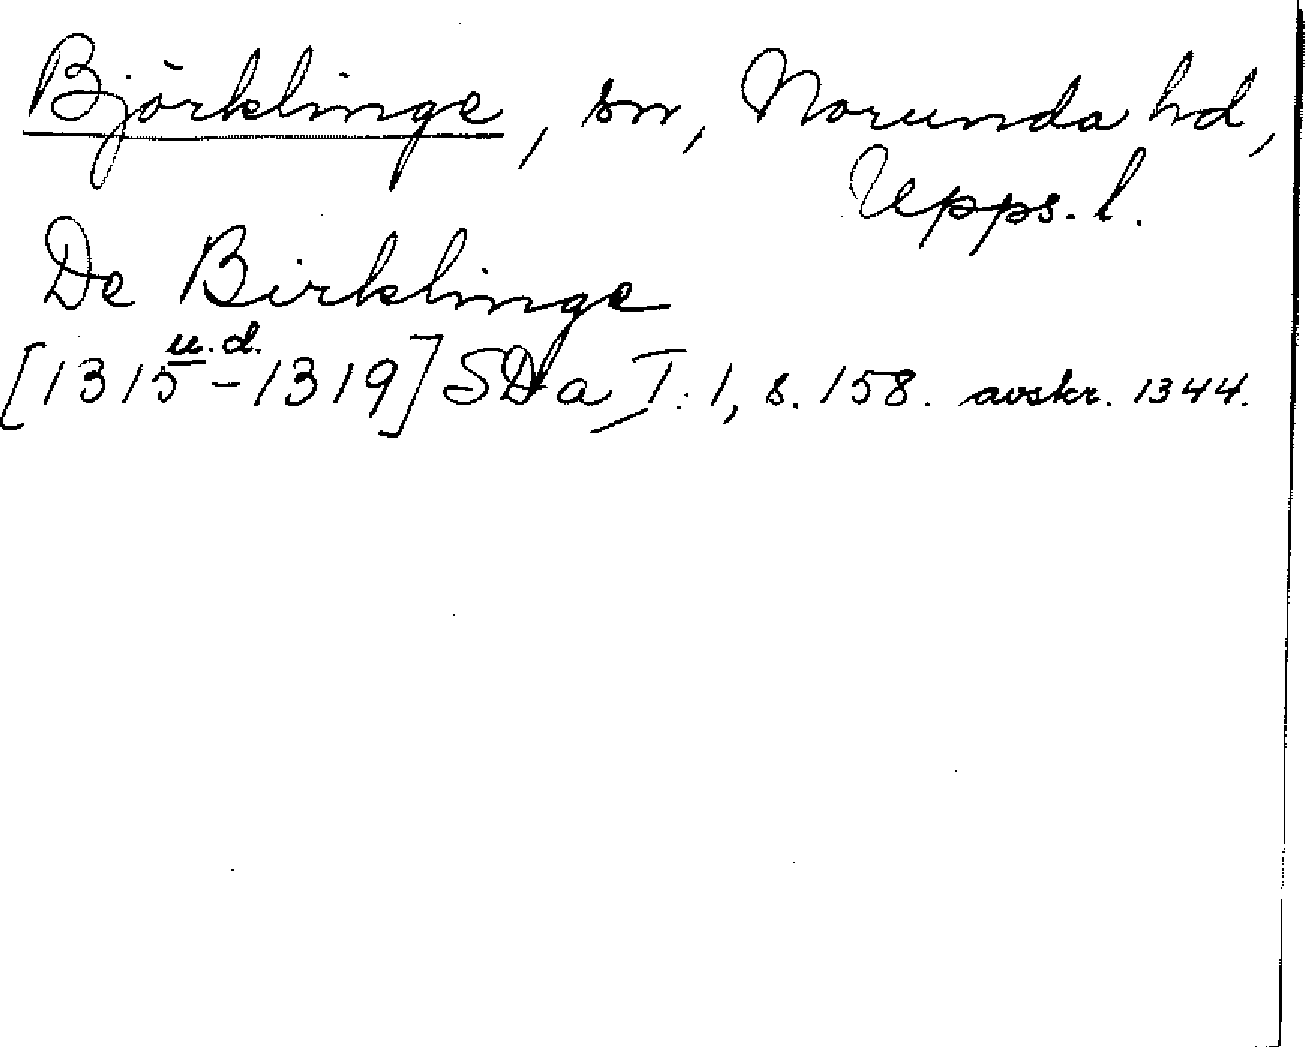 Björklinge, sn, Norunda hd,
Upps. l.
De Birklinge
u.d.
[1315-1319] SDa I:1, s. 158. avskr. 1344.